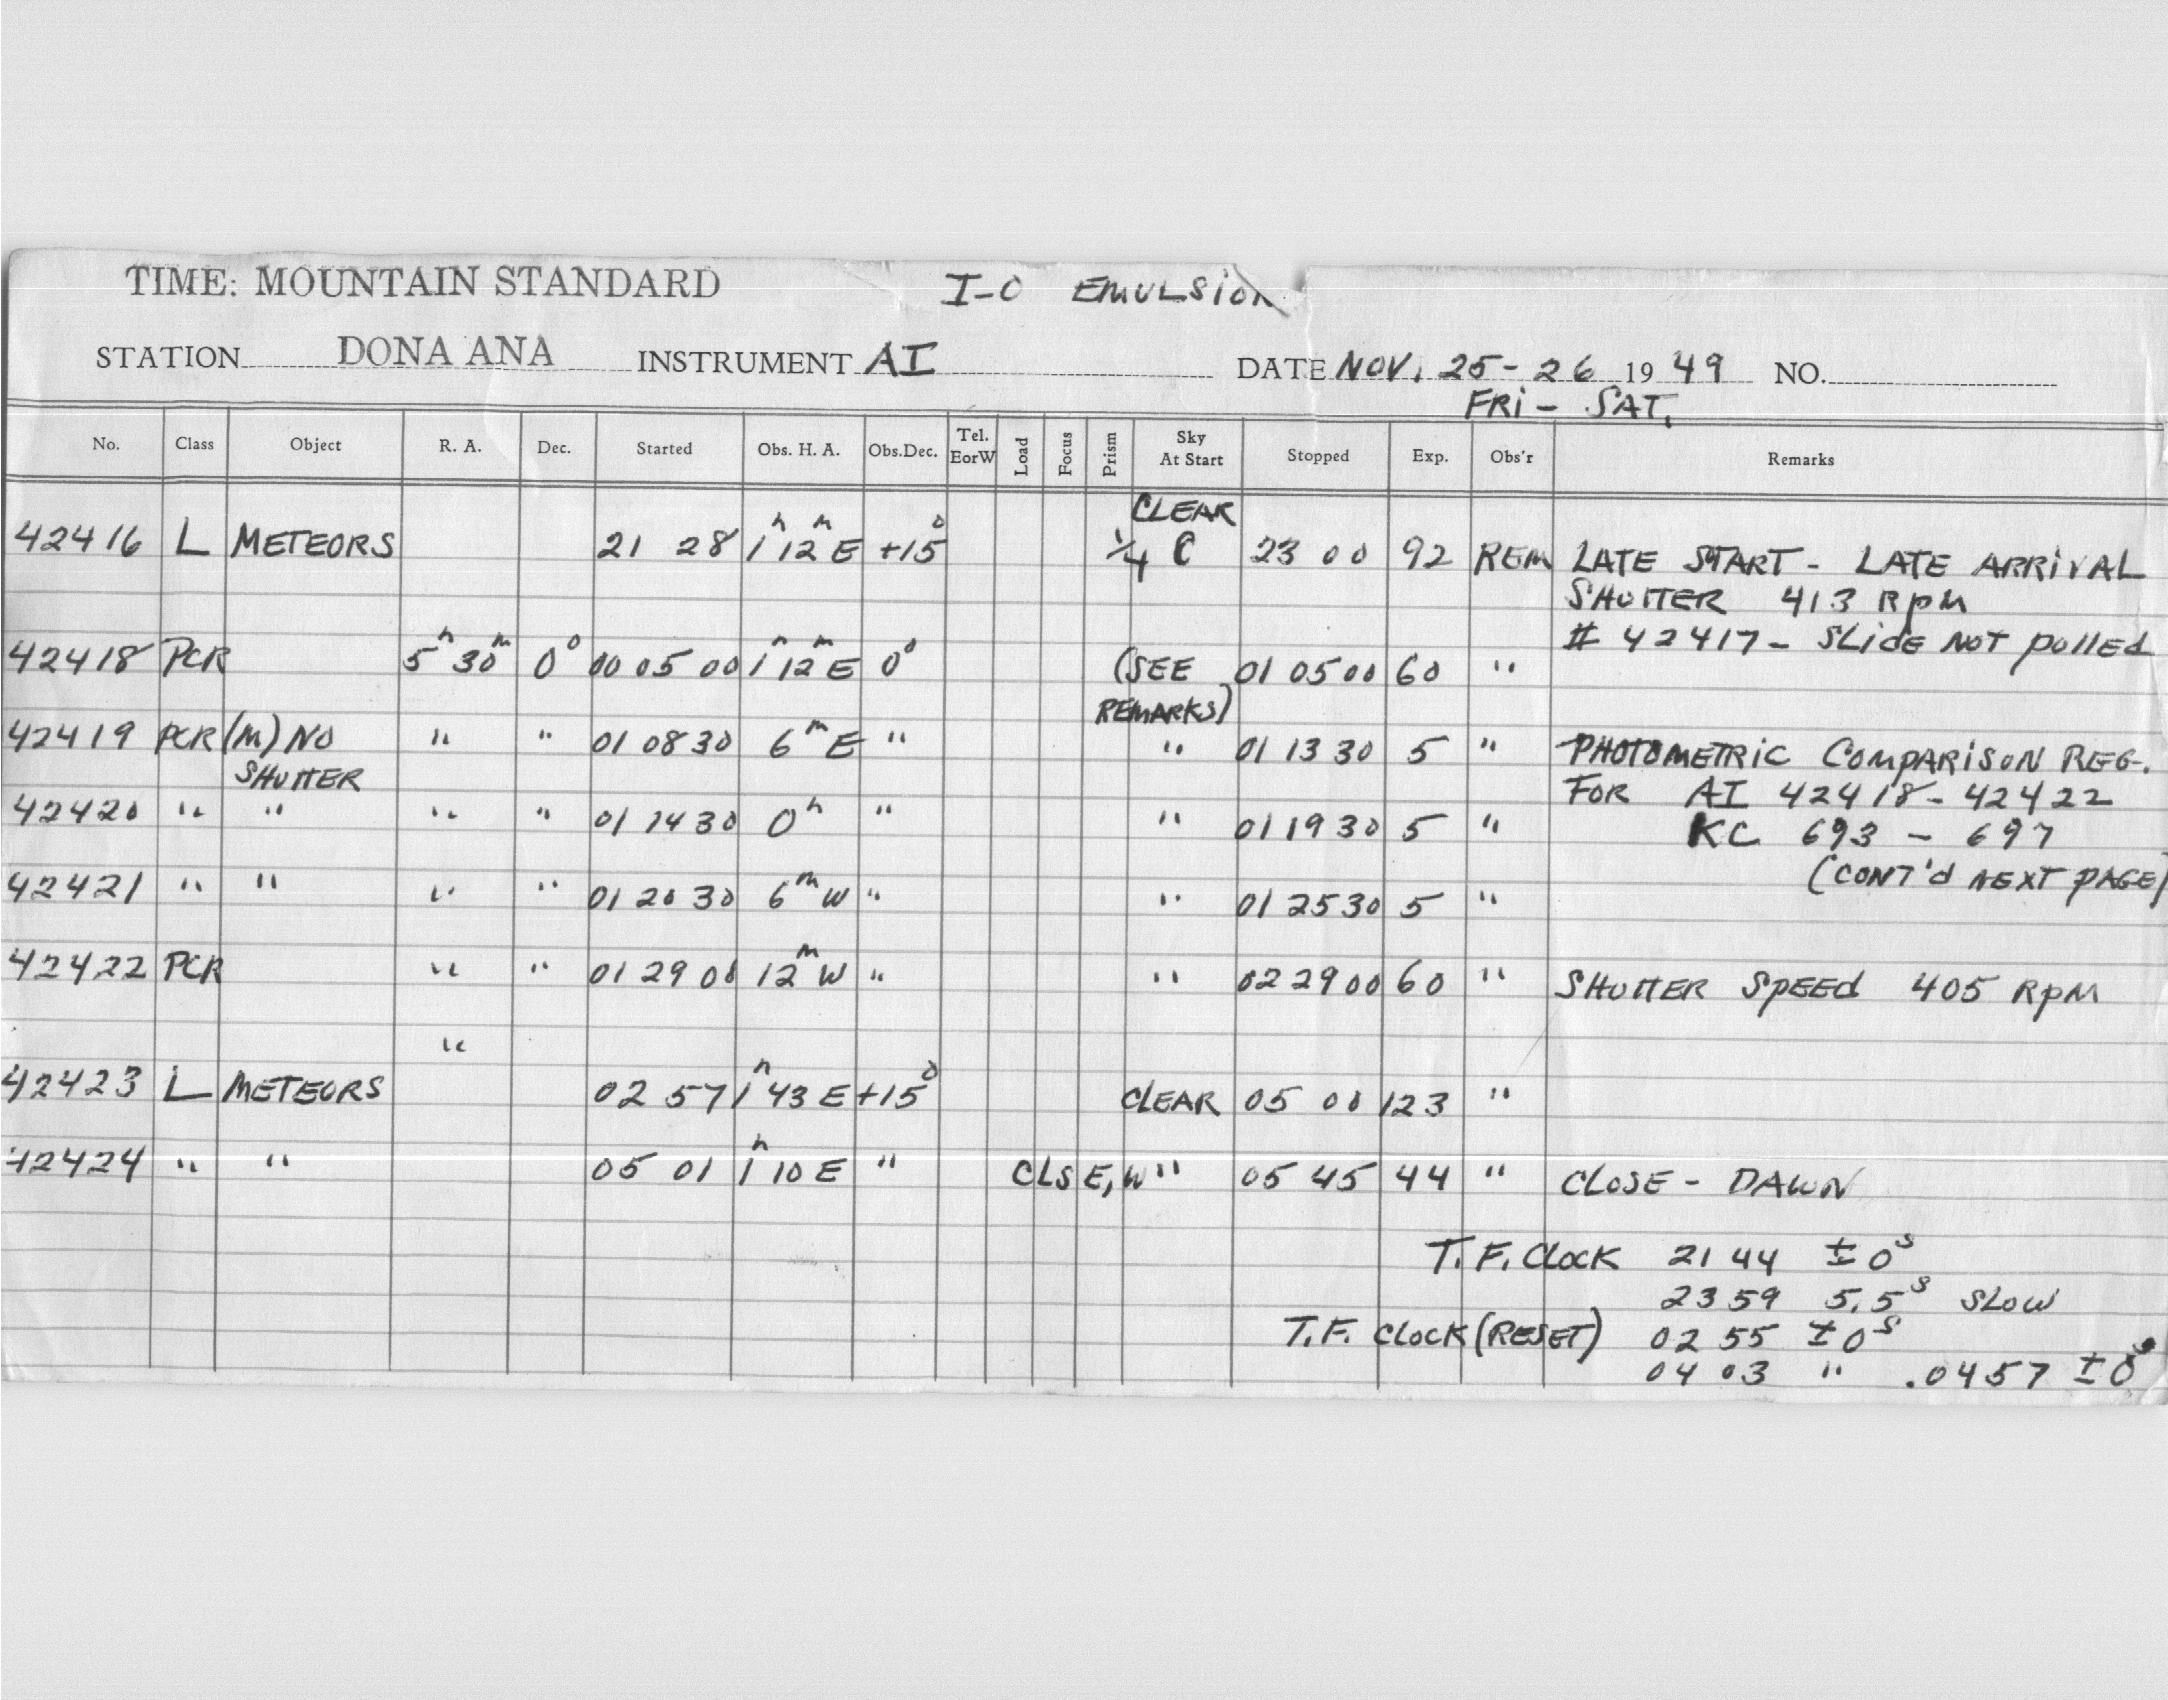 TIME: MOUNTAIN STANDARD I-O EMULSION
STATION DONA ANA INSTRUMENT AI DATE NOV. 25-26 19 49 NO.
FRI - SAT.
No. Class Object R. A. Dec. Started Obs. H. A. Obs.Dec. Tel. EorW Load Focus Prism Sky At Start Stopped Exp. Obs'r Remarks
CLEAR
42416 L METEORS 21 28 1h 12m E +15° 1/4 C 23 00 92 REM LATE START - LATE ARRIVAL
SHUTTER 413 RPM
# 42417 - SLIDE NOT PULLED
42418 PCR 5h 30m 0° 00 05 00 1h 12m E 0° (SEE 01 05 00 60 "
REMARKS)
42419 PCR (M) NO " " 01 08 30 6m E " " 01 13 30 5 " PHOTOMETRIC COMPARISON REG.
SHUTTER
FOR AI 42418 - 42422
42420 " " " " 01 14 30 0h " " 01 19 30 5 " KC 693 - 697
(CONT'D NEXT PAGE)
42421 " " " " 01 20 30 6m W " " 01 25 30 5 "
42422 PCR " " 01 29 00 12m W " " 02 29 00 60 " SHUTTER SPEED 405 RPM
"
42423 L METEORS 02 57 1h 43 E +15° CLEAR 05 00 123 "
42424 " " 05 01 1h 10 E " CLS E, W " 05 45 44 " CLOSE - DAWN
T. F. CLOCK 21 44 ± 0s
23 59 5.5s SLOW
T.F. CLOCK (RESET) 02 55 ± 0s
04 03 " .0457 ± 0s